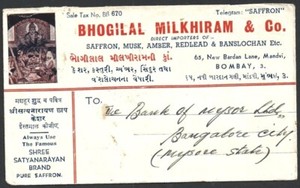 Sale Tax No. BII 670
Telegram: "SAFFRON"
BHOGILAL MILKHIRAM & Co.
DIRECT IMPORTERS OF:-
SAFFRON, MUSK, AMBER, REDLEAD & BANSLOCHAN Etc.
ભોગીલાલ મીલખીરામની કાં.
કેશર, કસ્તુરી, અંબર, સિંદુર તથા
વંશલોચનના વેપારી.
65, New Barden Lane, Mandvi,
BOMBAY, 3.
श्रीसत्यनारायण छाप
केशर
Always Use
The Famous
SHREE
SATYANARAYAN
BRAND
PURE SAFFRON.
TO,
The Bank of Mysor Ltd,
Bangalore city
(Mysore State)